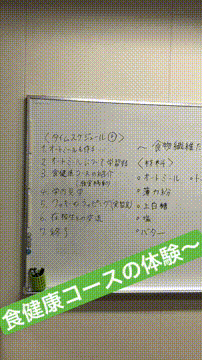 〈タイムスケジュール①〉
1. オートミールを作る
2. オートミールについて学習
3. 食健康コースの紹介
4. 学内見学
5. クッキーラッピング
6. 在校生との交流
7. 終了
〜食物繊維た
〈材料〉
•オートミール
•薄力粉
•上白糖
•塩
•バター
食健康コースの体験〜